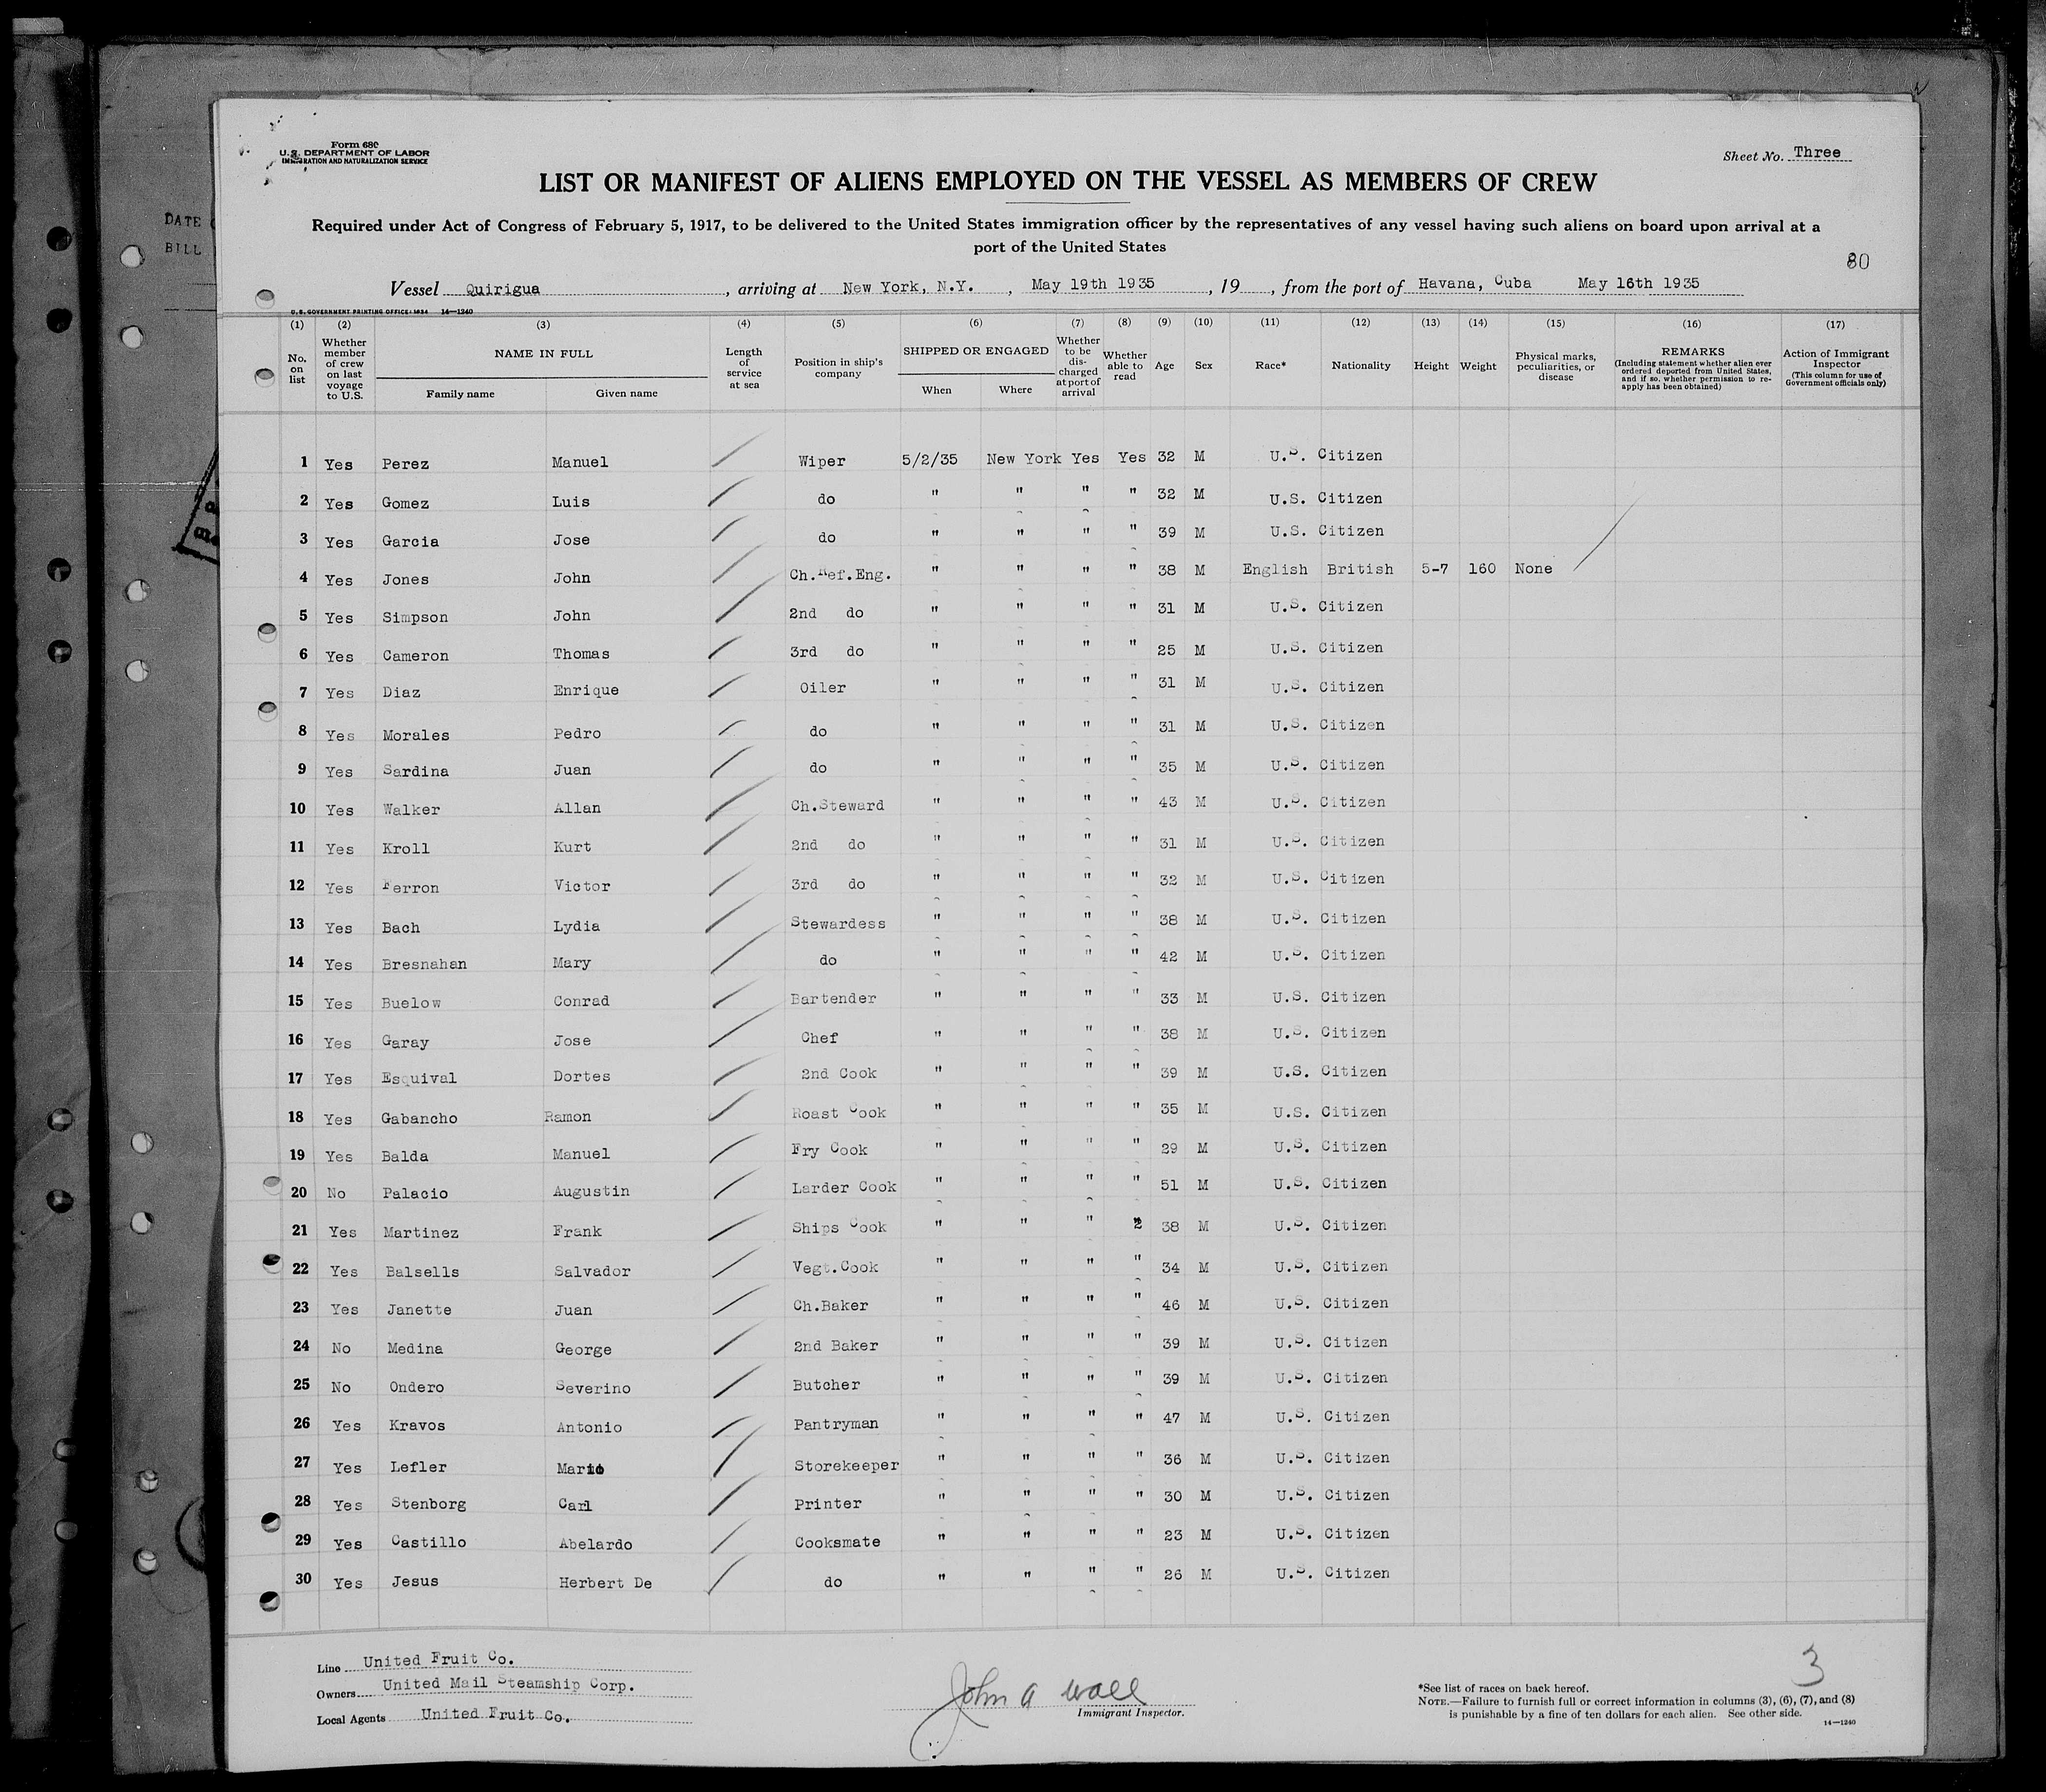 DATE
BILL
Form 680
U.S. DEPARTMENT OF LABOR
IMMIGRATION AND NATURALIZATION SERVICE
Sheet No. Three
LIST OR MANIFEST OF ALIENS EMPLOYED ON THE VESSEL AS MEMBERS OF CREW
Required under Act of Congress of February 5, 1917, to be delivered to the United States immigration officer by the representatives of any vessel having such aliens on board upon arrival at a
port of the United States
80
Vessel Quirigua, arriving at New York, N.Y., May 19th 1935, 19, from the port of Havana, Cuba May 16th 1935
U.S. GOVERNMENT PRINTING OFFICE: 1934 14—1240
(1) (2) (3) (4) (5) (6) (7) (8) (9) (10) (11) (12) (13) (14) (15) (16) (17)
No. on list
Whether member of crew on last voyage to U.S.
NAME IN FULL
Family name
Given name
Length of service at sea
Position in ship's company
SHIPPED OR ENGAGED
When
Where
Whether to be discharged at port of arrival
Whether able to read
Age
Sex
Race*
Nationality
Height
Weight
Physical marks, peculiarities, or disease
REMARKS
(Including statement whether alien ever ordered deported from United States, and if so, whether permission to reapply has been obtained)
Action of Immigrant Inspector
(This column for use of Government officials only)
1 Yes Perez Manuel Wiper 5/2/35 New York Yes Yes 32 M U.S. Citizen
2 Yes Gomez Luis do " " " " 32 M U.S. Citizen
3 Yes Garcia Jose do " " " " 39 M U.S. Citizen
4 Yes Jones John Ch.Ref.Eng. " " " " 38 M English British 5-7 160 None
5 Yes Simpson John 2nd do " " " " 31 M U.S. Citizen
6 Yes Cameron Thomas 3rd do " " " " 25 M U.S. Citizen
7 Yes Diaz Enrique Oiler " " " " 31 M U.S. Citizen
8 Yes Morales Pedro do " " " " 31 M U.S. Citizen
9 Yes Sardina Juan do " " " " 35 M U.S. Citizen
10 Yes Walker Allan Ch.Steward " " " " 43 M U.S. Citizen
11 Yes Kroll Kurt 2nd do " " " " 31 M U.S. Citizen
12 Yes Ferron Victor 3rd do " " " " 32 M U.S. Citizen
13 Yes Bach Lydia Stewardess " " " " 38 M U.S. Citizen
14 Yes Bresnahan Mary do " " " " 42 M U.S. Citizen
15 Yes Buelow Conrad Bartender " " " " 33 M U.S. Citizen
16 Yes Garay Jose Chef " " " " 38 M U.S. Citizen
17 Yes Esquival Dortes 2nd Cook " " " " 39 M U.S. Citizen
18 Yes Gabancho Ramon Roast Cook " " " " 35 M U.S. Citizen
19 Yes Balda Manuel Fry Cook " " " " 29 M U.S. Citizen
20 No Palacio Augustin Larder Cook " " " " 51 M U.S. Citizen
21 Yes Martinez Frank Ships Cook " " " 2 38 M U.S. Citizen
22 Yes Balsells Salvador Vegt.Cook " " " " 34 M U.S. Citizen
23 Yes Janette Juan Ch.Baker " " " " 46 M U.S. Citizen
24 No Medina George 2nd Baker " " " " 39 M U.S. Citizen
25 No Ondero Severino Butcher " " " " 39 M U.S. Citizen
26 Yes Kravos Antonio Pantryman " " " " 47 M U.S. Citizen
27 Yes Lefler Mario Storekeeper " " " " 36 M U.S. Citizen
28 Yes Stenborg Carl Printer " " " " 30 M U.S. Citizen
29 Yes Castillo Abelardo Cooksmate " " " " 23 M U.S. Citizen
30 Yes Jesus Herbert De do " " " " 26 M U.S. Citizen
Line United Fruit Co.
Owners United Mail Steamship Corp.
Local Agents United Fruit Co.
John A Wall
Immigrant Inspector.
3
*See list of races on back hereof.
NOTE.—Failure to furnish full or correct information in columns (3), (6), (7), and (8)
is punishable by a fine of ten dollars for each alien. See other side.
14—1240